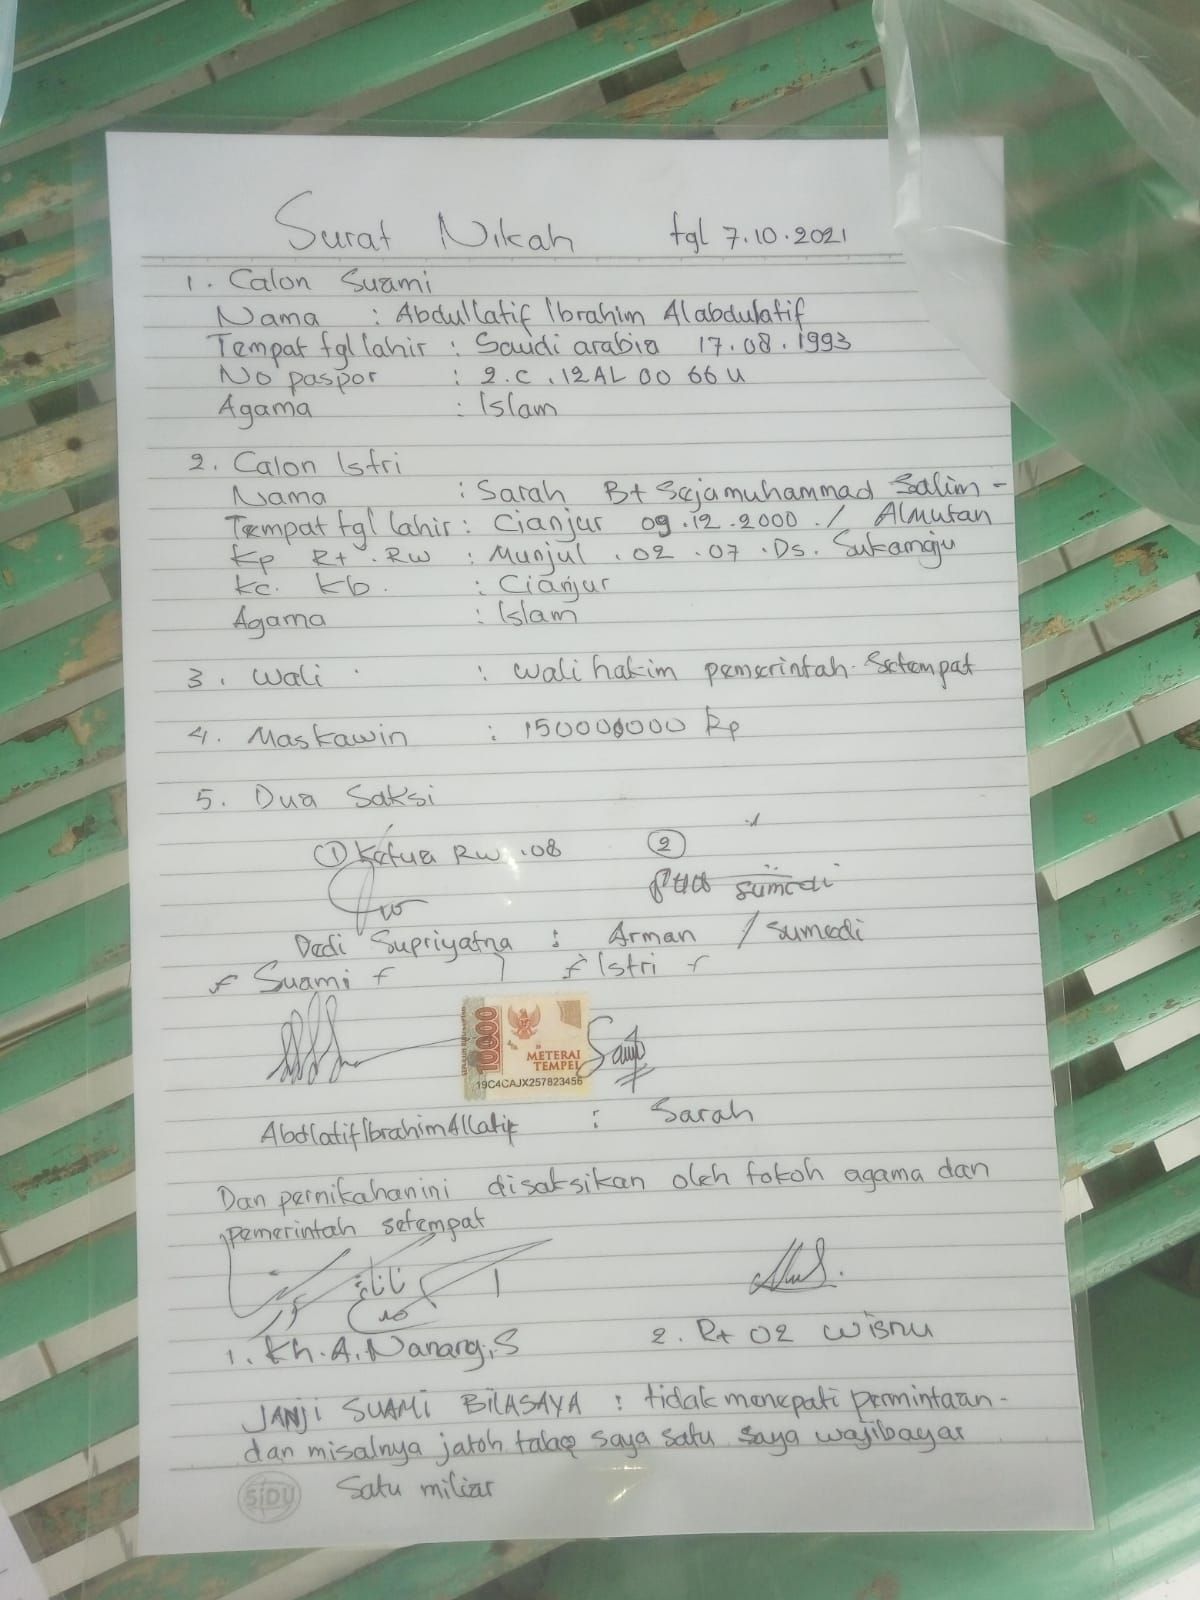 Surat Nikah tgl 7.10.2021
1. Calon Suami
Nama : Abdullatif Ibrahim Alabdulatif
Tempat tgl lahir : Saudi arabia 17.08.1993
No paspor : 2.C.12AL 00 66 U
Agama : Islam
2. Calon Istri
Nama : Sarah Bt Sejamuhammad Salim-
Tempat tgl lahir : Cianjur 09.12.2000./ Almutan
Kp Rt.RW : Munjul.02.07.Ds. Sukamaju
Kc. Kb. : Cianjur
Agama : Islam
3. Wali : Wali hakim pemerintah Setempat
4. Maskawin : 150000000 Rp
5. Dua Saksi
① Ketua RW.08 ②
sumedi
Dedi Supriyatna : Arman / Sumedi
Suami Istri
10000
METERAI
TEMPEL
19C4CAJX257823456
Abdlatif Ibrahim Allatif : Sarah
Dan pernikahan ini disaksikan oleh tokoh agama dan
pemerintah setempat
1. Kh.A.Nanang,S 2. Rt 02 Wisnu
JANJI SUAMI BILASAYA : tidak menepati permintaan-
dan misalnya jatoh talaq saya satu saya wajibayar
SiDU Satu miliar